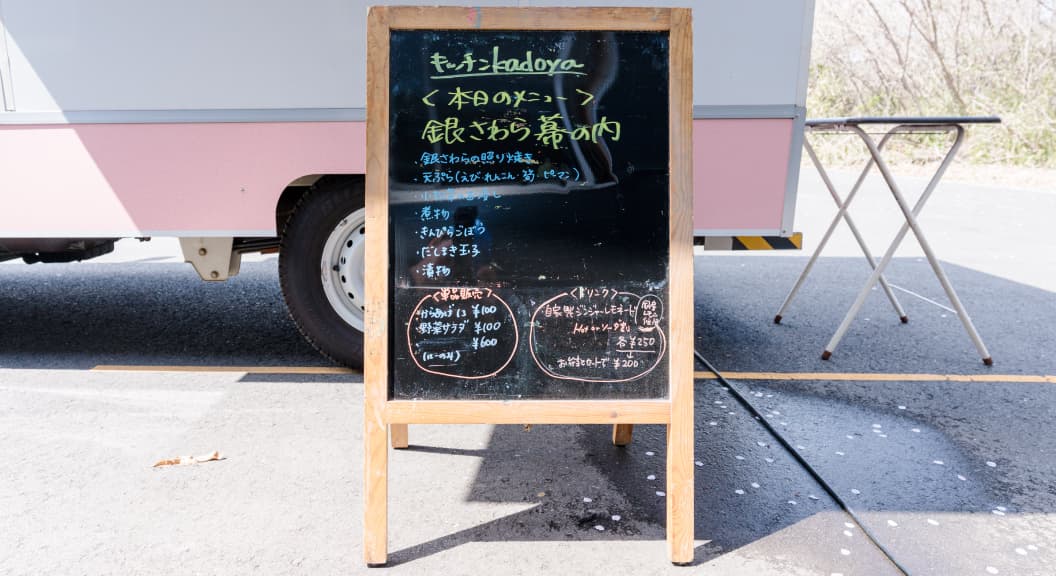 キッチンkadoya
<本日のメニュー>
銀さわら幕の内
・銀さわらの照り焼き
・天ぷら(えび・れんこん・筍・ピーマン)
・煮物
・きんぴらごぼう
・だしまき玉子
・漬物
<単品販売>
・からあげ 1コ ¥100
・野菜サラダ ¥100
¥600
<ドリンク>
・自家製ジンジャーレモネード
Hot or ソーダ割り
各¥250
↓
お弁当とセットで ¥200